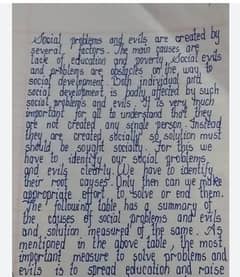 Social problems and evils are created by
several factors. The main causes are
lack of education and poverty. Social evils
and problems are obstacles on the way to
social development. Both individual and
social development is badly affected by such
social problems and evils. It is very much
important for all to understand that they
are not created any single person. Instead
they are created socially so solution must
should be sought socially. For this we
have to identify our social problems
and evils clearly. We have to identify
their root causes. Only then can we make
appropriate effort to solve or end them.
The following table has a summary of
the causes of social problems and evils
and solution measured of the same. As
mentioned in the above table, the most
important measure to solve problems and
evils is to spread education and raise